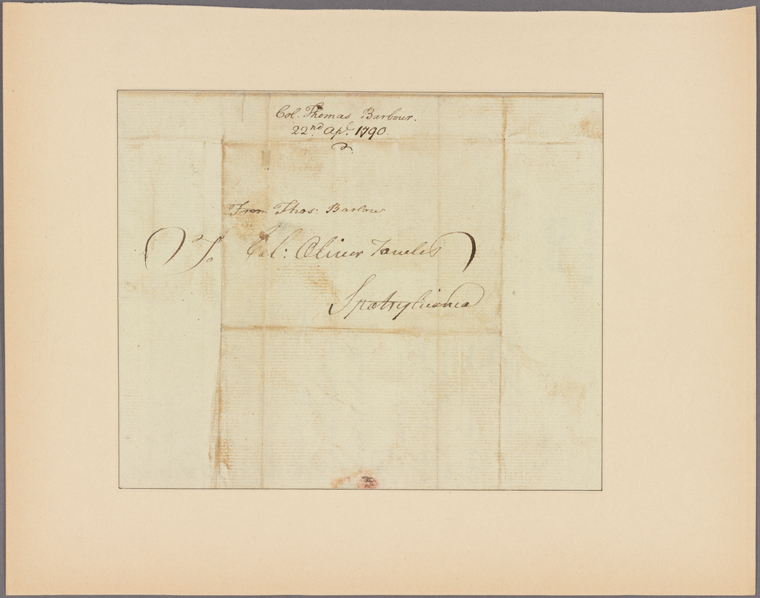 Col. Thomas Barbour.
22nd Apl. 1790
From Thos. Barbour
To Col: Oliver Towles
Spotsylvania